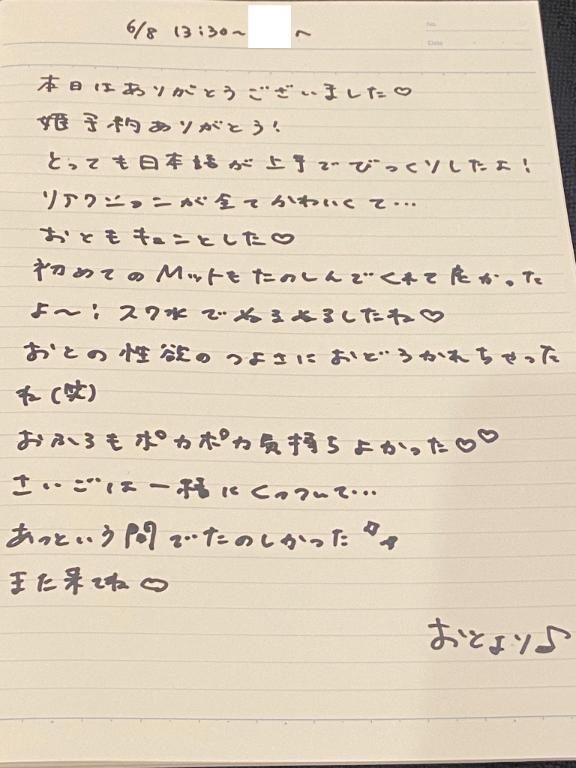 6/8 13:30〜 へ
No.
Date
本日はありがとうございました♡
姫予約ありがとう!
とっても日本語が上手でびっくりしたよ!
リアクションが全てかわいくて…
おともキュンとした♡
初めてのMットもたのしんでくれて良かった
よ〜!スク水でぬるぬるしたね♡
おとの性欲のつよさにおどろかれちゃった
ね(笑)
おふろもポカポカ気持ちよかった♡♡
さいごは一緒にくっついて…
あっという間でたのしかった
また来てね♡
おとより♪